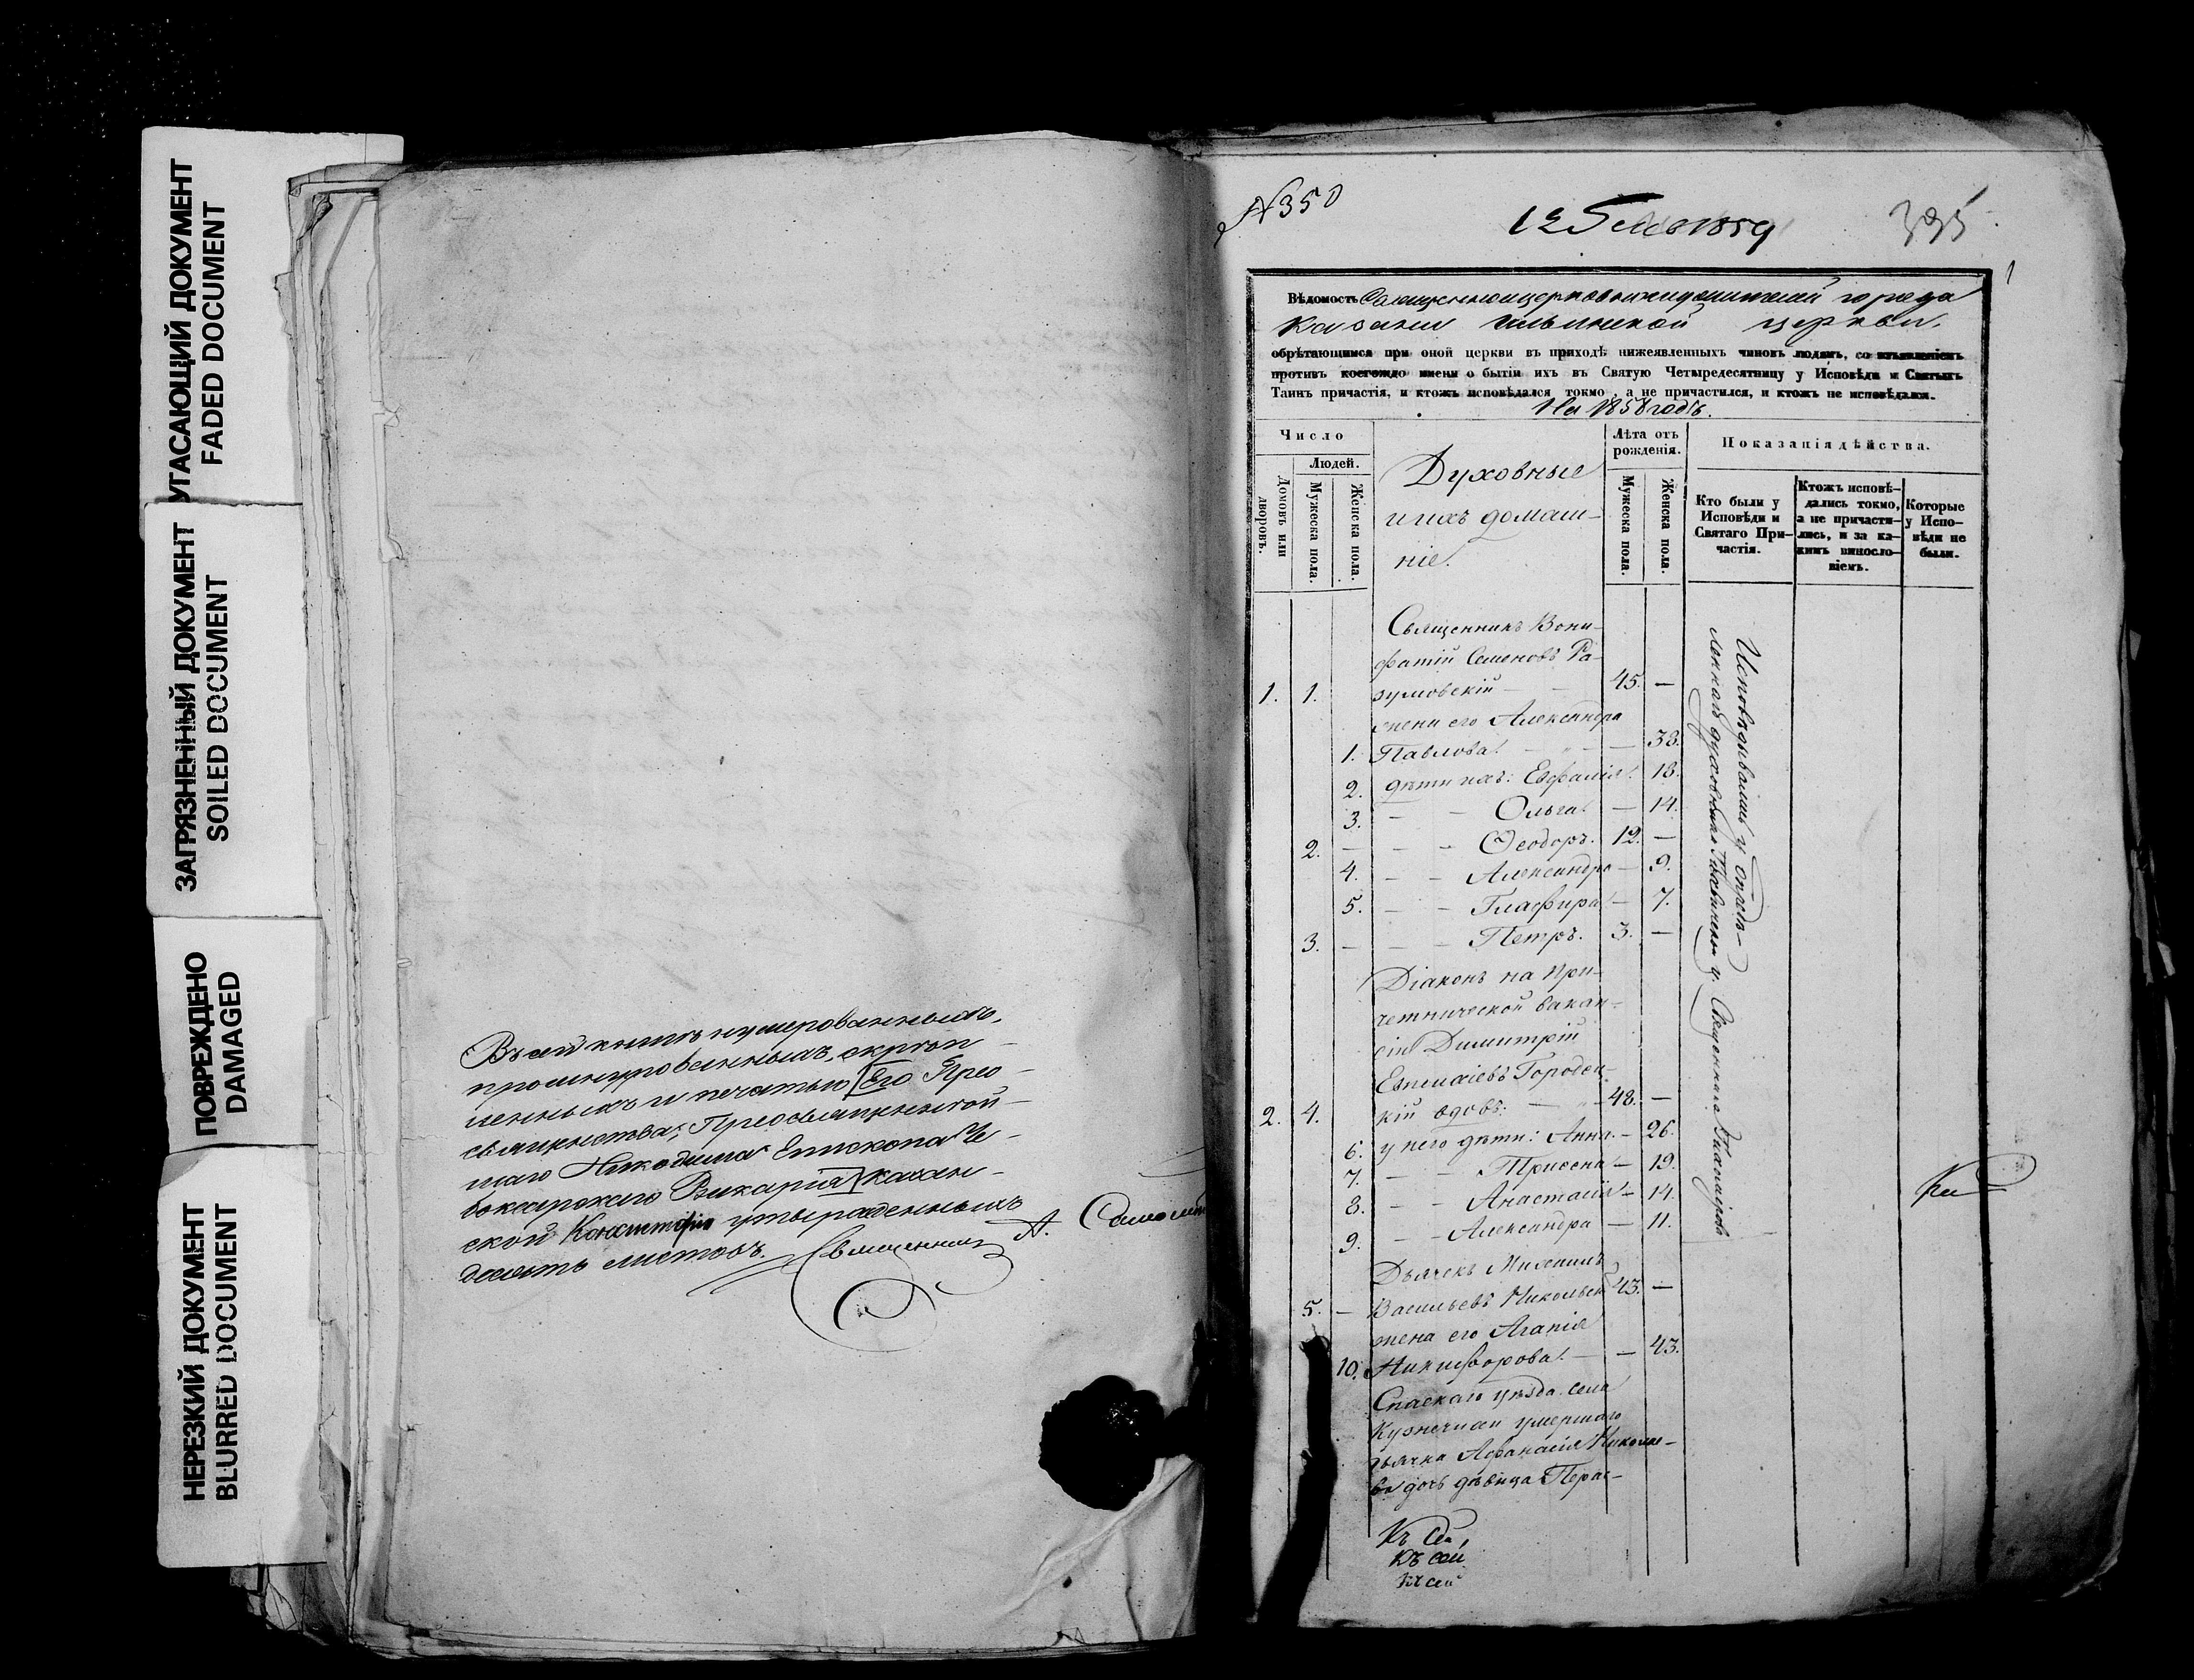 УГАСАЮЩИЙ ДОКУМЕНТ
FADED DOCUMENT
ЗАГРЯЗНЕННЫЙ ДОКУМЕНТ
SOILED DOCUMENT
ПОВРЕЖДЕНО
DAMAGED
НЕРЕЗКИЙ ДОКУМЕНТ
BLURRED DOCUMENT
Въ сей книгѣ нумерованныхъ,
прошнурованныхъ, скрѣп-
ленныхъ и печатью Его Прео-
священства, Преосвященной-
шаго Никодима Епископа Че-
боксарского Викарія Казан-
ской Консисторіи утвержденныхъ
десять листовъ. Священникъ А.
N 350
1859
395
1
Вѣдомость Священноцерковнослужителей города
Казани Ильинской церкви.
обрѣтающимся при оной церкви въ приходѣ нижеявленныхъ чиновъ людямъ, со изъявленіемъ
противъ коегождо имени о бытіи ихъ въ Святую Четыредесятницу у Исповѣди и Святыхъ
Таинъ причастія, и ктожъ исповѣдался токмо, а не причастился, и ктожъ не исповѣдался.
На 1858 годъ.
Число
Людей.
Домовъ или дворовъ.
Мужеска пола.
Женска пола.
Духовные
и ихъ домаш-
ніе.
Лѣта отъ рожденія.
Мужеска пола.
Женска пола.
Показанія дѣйства.
Кто были у Исповѣди и Святаго При-частія.
Ктожъ исповѣ-дались токмо, а не причасти-лись, и за ка-кимъ винносло-віемъ.
Которые у Испо-вѣди не были.
Священникъ Вони-
фатій Семеновъ Ра-
1. 1. зумовскій — 45. —
жена его Александра
1. Павлова. — 38.
2. дѣти ихъ: Евфалія. 18.
3. — — Ольга. — 14.
2. — — — Ѳеодоръ. 12. —
4. — — Александра — 9.
5. — — Глафира — 7.
3. — — — Петръ. 3. —
Діаконъ на при-
четнической вакан-
сіи Димитрій
Городец-
2. 4. кій вдовъ: — 48. —
6. у него дѣти: Анна. — 26.
7. — — — 19.
8. — — Анастасія — 14.
9. — — Александра — 11.
Дьячекъ Михаилъ
5. — Васильевъ Никольск 43. —
жена его Агапія
10. Никифорова. — — 43.
Спаскаго уѣзда села
Кузнечихи умершаго
дьячка Афанасія Николае-
ва дочь дѣвица Перас-
Исповѣдывались у Опредѣ-
леннаго духовника
Священника
Къ сей
Къ сей
Къ сей